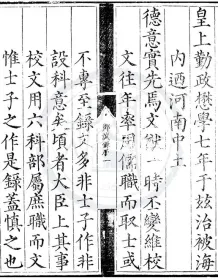 皇上勤政懋學七年于玆治被海
內迺河南中土
德意實先焉文獻一時丕變維校
文往年率用儒職而取士或
不專至錄文多非士子作非
設科意矣頃者大臣上其事
校文用六科部屬庶職而文
惟士子之作是錄蓋慎之也